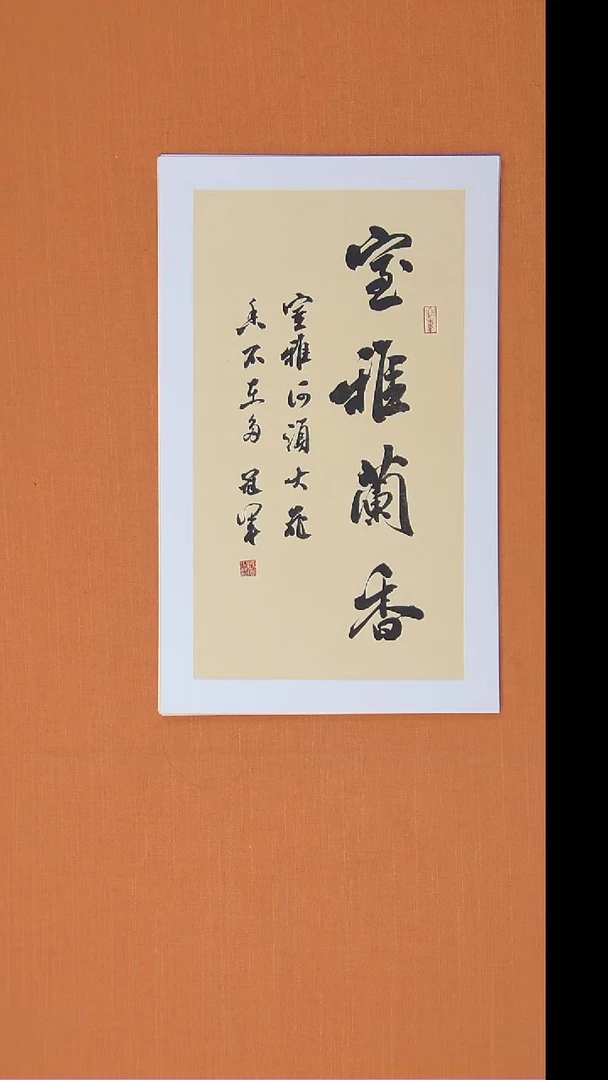 室雅蘭香
室雅何須大花
香不在多